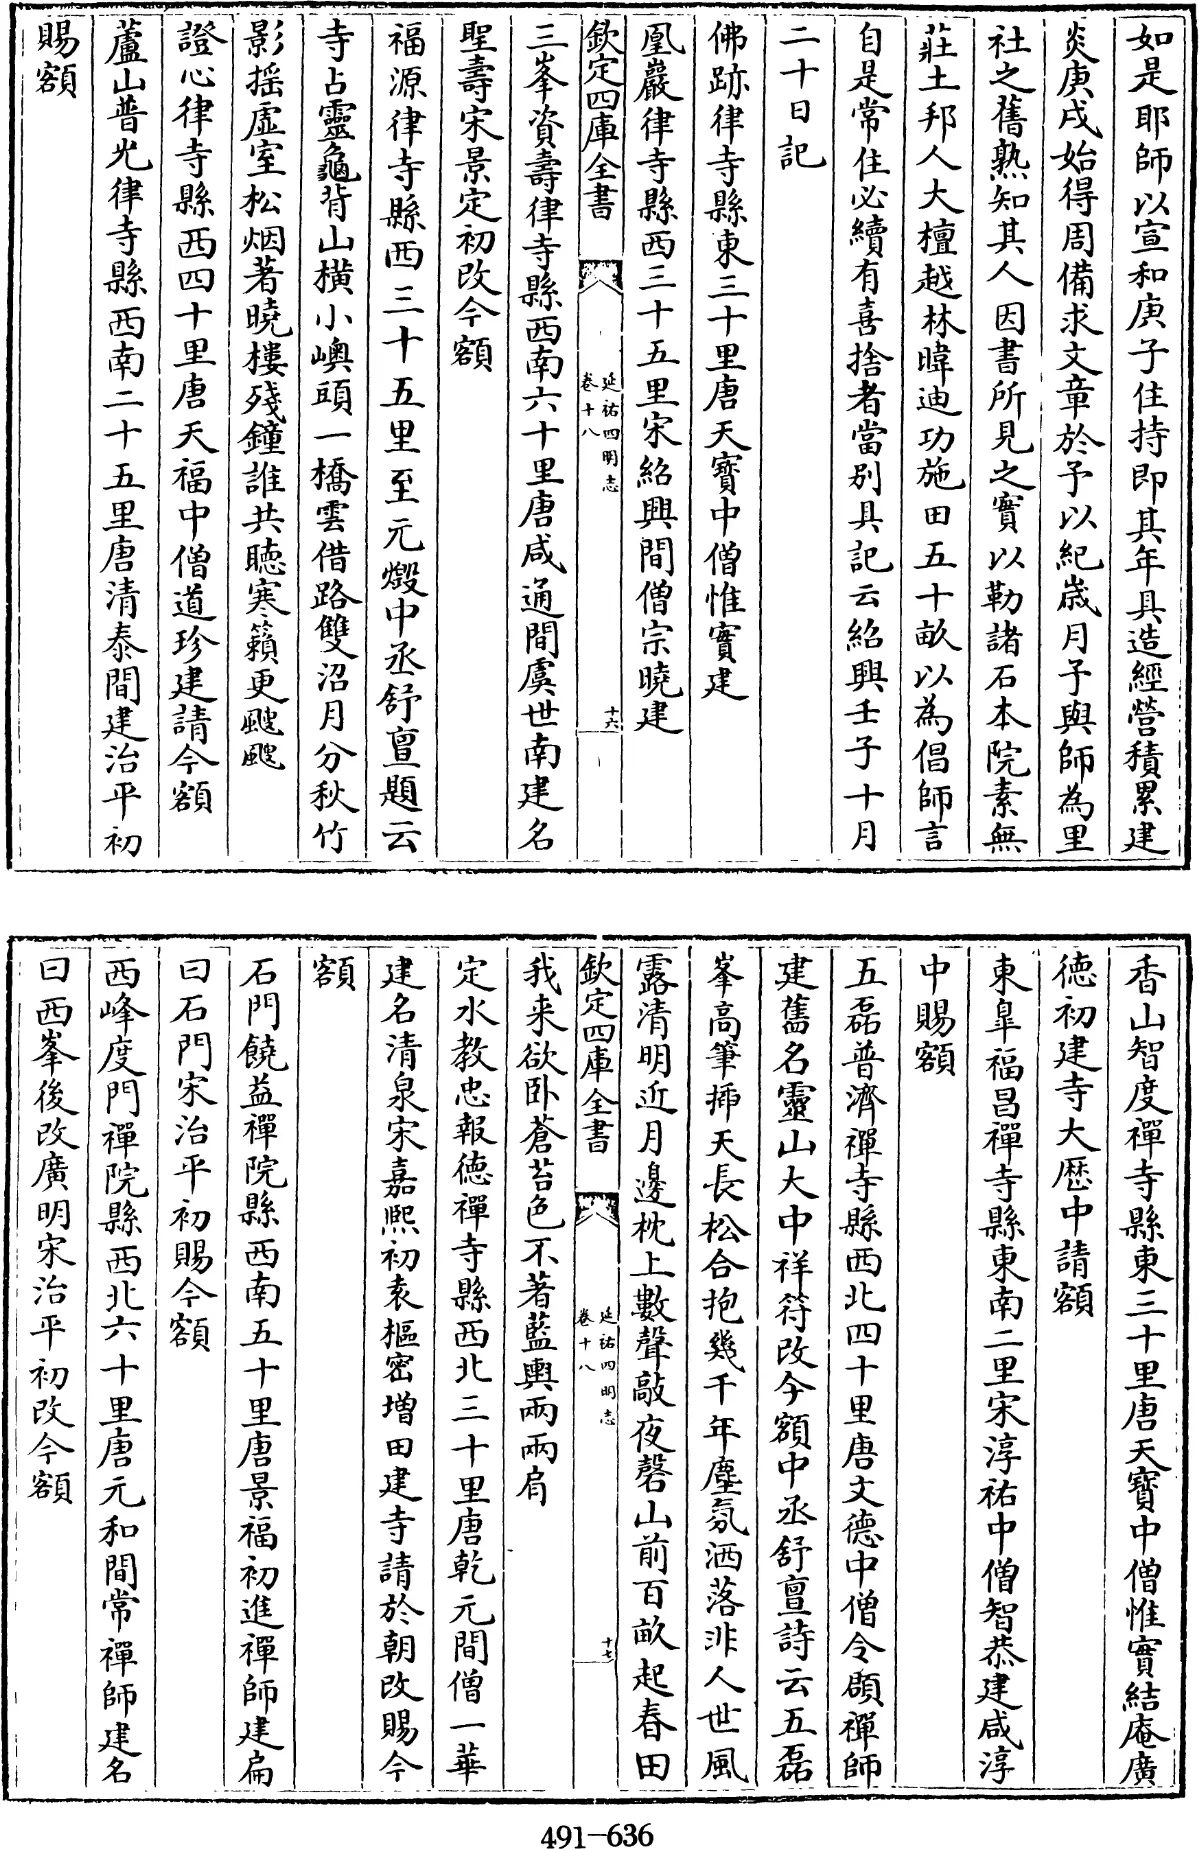 如是耶師以宣和庚子住持即其年具造經營積累建
炎庚戌始得周備求文章於予以紀歲月予與師為里
社之舊熟知其人因書所見之實以勒諸石本院素無
莊土邦人大檀越林暐迪功施田五十畝以為倡師言
自是常住必續有喜捨者當别具記云紹興壬子十月
二十日記
佛跡律寺縣東三十里唐天寳中僧惟實建
凰巖律寺縣西三十五里宋紹興間僧宗曉建
欽定四庫全書
延祐四明志
卷十八
十六
三峯資壽律寺縣西南六十里唐咸通間虞世南建名
聖壽宋景定初改今額
福源律寺縣西三十五里至元燬中丞舒亶題云
寺占靈龜背山橫小嶼頭一橋雲借路雙沼月分秋竹
影揺虚室松烟著曉樓殘鐘誰共聴寒籟更颼飀
證心律寺縣西四十里唐天福中僧道珍建請今額
蘆山普光律寺縣西南二十五里唐清泰間建治平初
賜額
香山智度禪寺縣東三十里唐天寳中僧惟實結庵廣
徳初建寺大歴中請額
東臯福昌禪寺縣東南二里宋淳祐中僧智恭建咸淳
中賜額
五磊普濟禪寺縣西北四十里唐文德中僧令頵禪師
建舊名靈山大中祥符改今額中丞舒亶詩云五磊
峯高筆揷天長松合抱幾千年塵氛洒落非人世風
露清明近月邊枕上數聲敲夜磬山前百畝起春田
欽定四庫全書
延祐四明志
卷十八
十七
我来欲卧蒼苔色不著藍輿兩兩肩
定水教忠報徳禪寺縣西北三十里唐乾元間僧一華
建名清泉宋嘉熙初袁樞密増田建寺請於朝改賜今
額
石門饒益禪院縣西南五十里唐景福初進禪師建扁
曰石門宋治平初賜今額
西峰度門禪院縣西北六十里唐元和間常禪師建名
曰西峯後改廣明宋治平初改今額
491-636